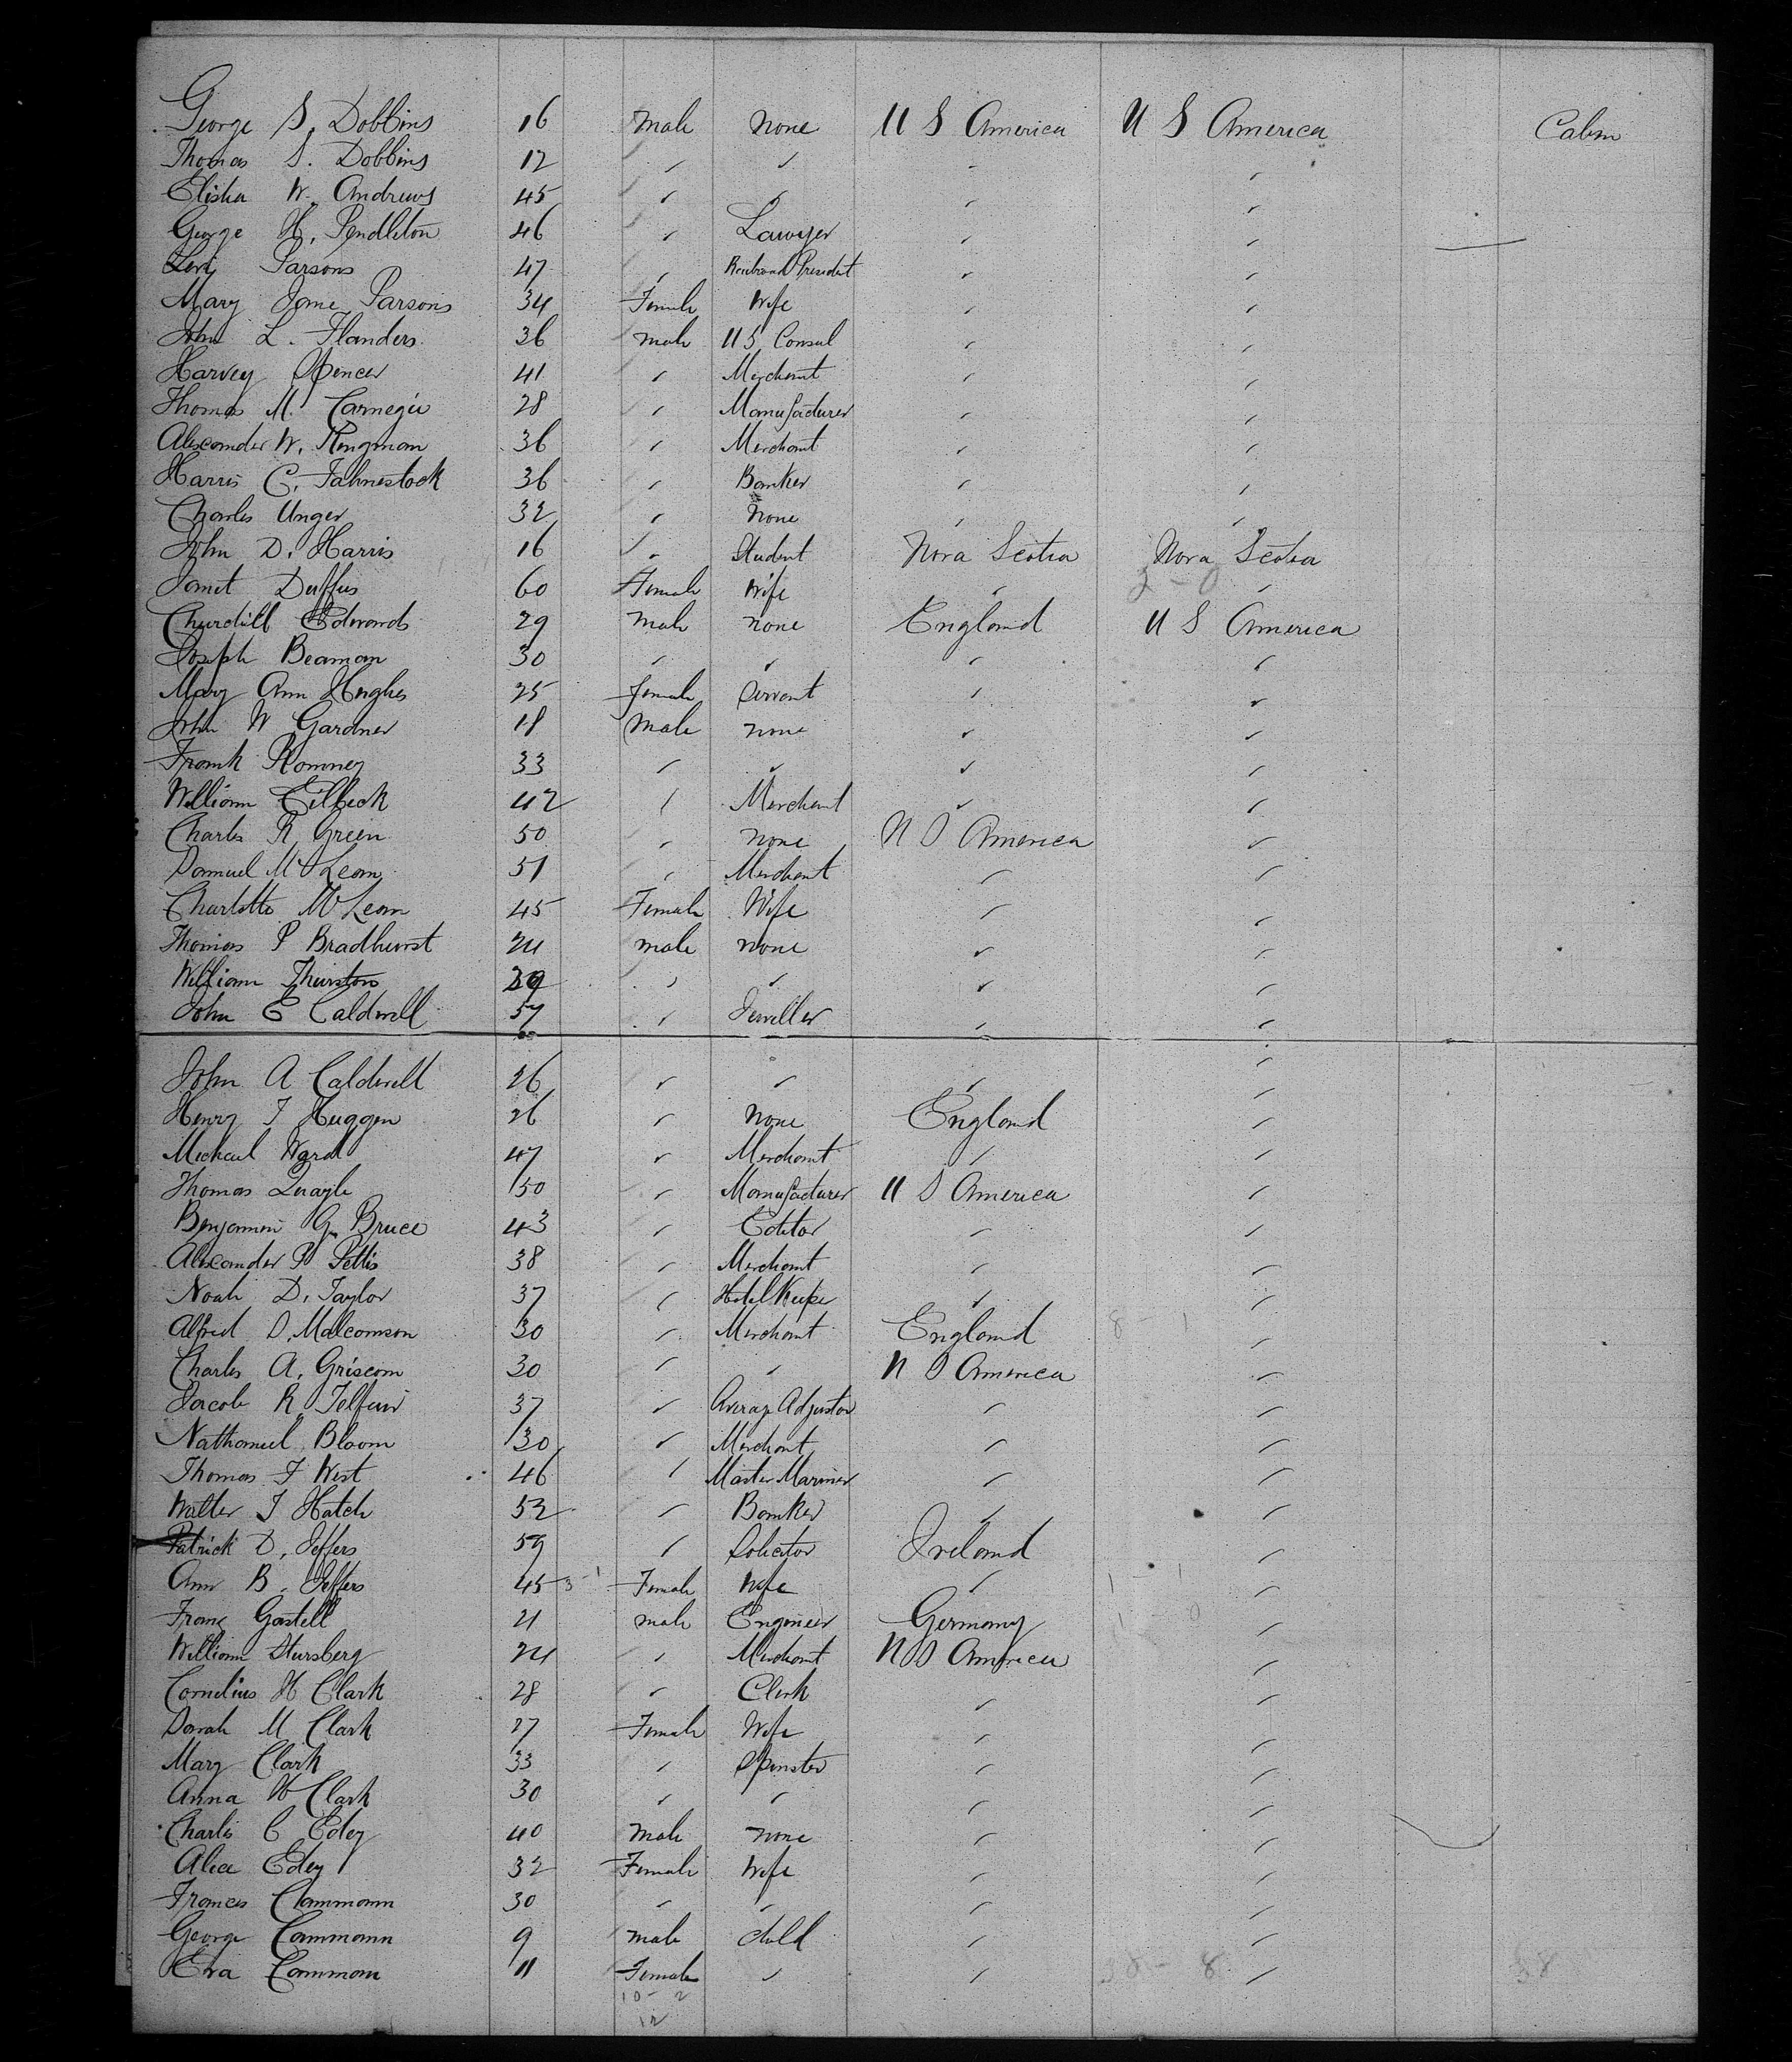 George S. Dobbins 16 male none U S America U S America Cabin
Thomas S. Dobbins 12 " " " "
Elisha W. Andrews 45 " " " "
George H. Pendleton 46 " Lawyer " "
Levi Parsons 47 " Railroad President " "
Mary Jane Parsons 34 Female Wife " "
John L. Flanders 36 male U S Consul " "
Harvey Spencer 41 " Merchant " "
Thomas M. Carnegie 28 " Manufacturer " "
Alexander W. Kingman 36 " Merchant " "
Harris C. Fahnestock 36 " Banker " "
Charles Unger 32 " None " "
John D. Harris 16 " Student Nova Scotia Nova Scotia
Janet Duffus 60 Female Wife " "
Churchill Edwards 29 male none England U S America
Joseph Beaman 30 " " " "
Mary Ann Hughes 25 female Servant " "
John W Gardner 18 Male none " "
Frank Romney 33 " " " "
William Eilbeck 42 " Merchant " "
Charles R Green 50 " none U S America "
Samuel McLean 51 " Merchant " "
Charlotte McLean 45 Female Wife " "
Thomas P Bradhurst 24 male none " "
William Thurston " " " "
John E Caldwell 57 " Jeweller " "
John A Caldwell 26 " " " "
Henry T Huggen 26 " none England "
Michael Ward 47 " Merchant " "
Thomas Quayle 50 " Manufacturer U S America "
Benjamin G. Bruce 43 " Editor " "
Alexander P Pettis 38 " Merchant " "
Noah D. Taylor 37 " Hotel Keeper " "
Alfred S. Malcomson 30 " Merchant England "
Charles A. Griscom 30 " " U S America "
Jacob R. Telfair 37 " Average Adjustor " "
Nathaniel Bloom 30 " Merchant " "
Thomas F West 46 " Master Mariner " "
Walter T Hatch 52 " Banker " "
Patrick D. Jeffers 59 " Solicitor Ireland "
Ann B. Jeffers 45 Female Wife " "
Franz Gastell 21 male Engineer Germany "
William Stursberg 24 " Merchant U S America "
Cornelius H Clark 28 " Clerk " "
Sarah M Clark 27 Female Wife " "
Mary Clark 33 " Spinster " "
Anna W Clark 30 " " " "
Charles C Edey 40 male none " "
Alice Edey 32 Female Wife " "
Frances Cammann 30 " " " "
George Cammann 9 male child " "
Eva Cammann 11 Female " " "
10 - 2
12